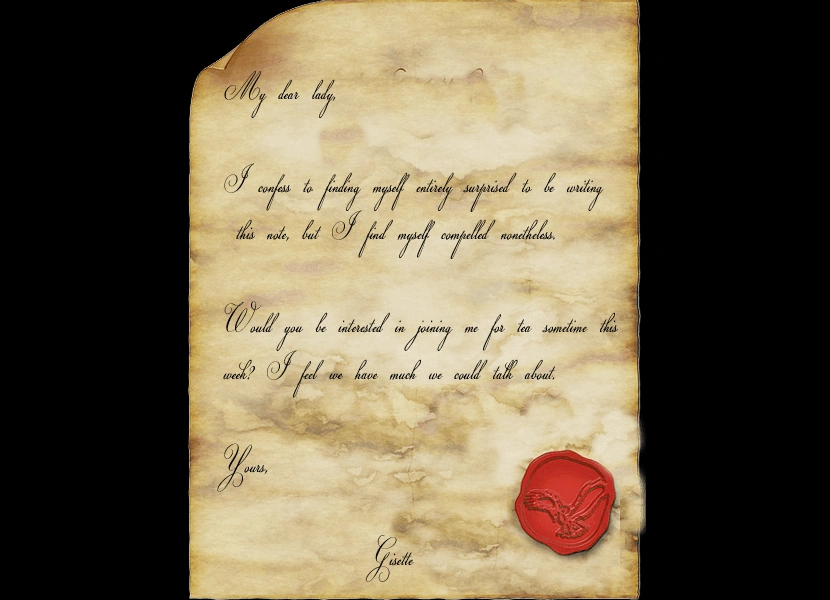 My dear lady,
I confess to finding myself entirely surprised to be writing
this note, but I find myself compelled nonetheless.
Would you be interested in joining me for tea sometime this
week? I feel we have much we could talk about.
Yours,
Gisette